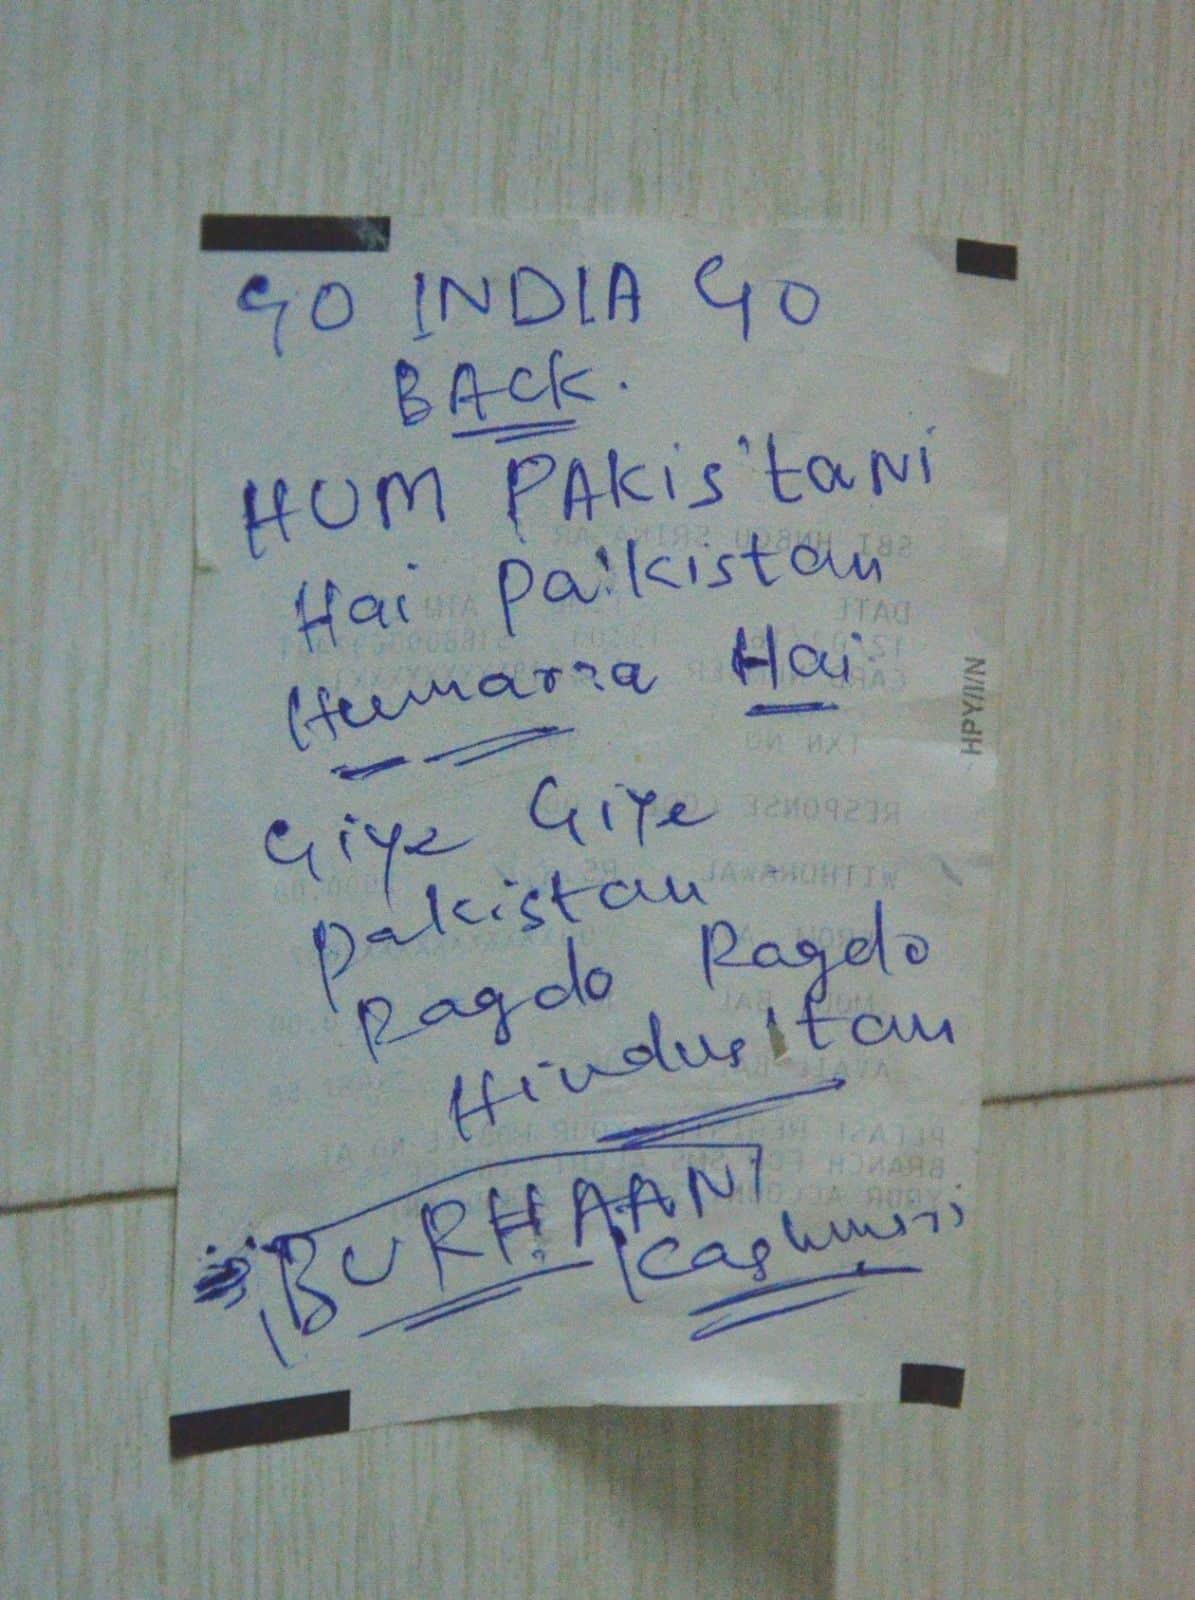 GO INDIA GO
BACK.
HUM PAKistaNi
Hai Pakistan
Humarra Hai
Giye Giye
Pakistan
Ragdo Ragdo
Hindustan
BURHAANI
Kashmiri
HPY/I/N
SBI HNBGU SRINAGAR
DATE ATM
CARD
TXN NO
RESPONSE
WITHDRAWAL RS
BAL
PLEASE REGISTER YOUR MOBILE NO AT
BRANCH FOR SMS
YOUR ACCOUNT